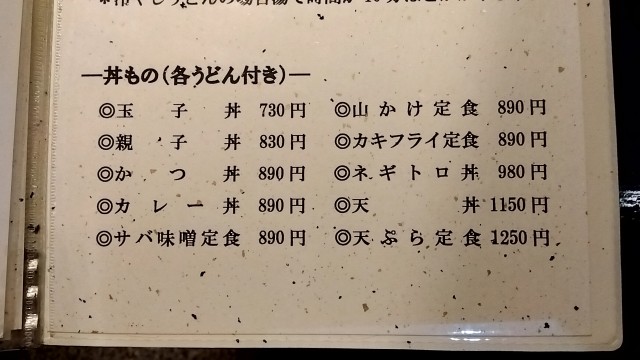 ―丼もの（各うどん付き）―
◎玉子丼 730円
◎親子丼 830円
◎かつ丼 890円
◎カレー丼 890円
◎サバ味噌定食 890円
◎山かけ定食 890円
◎カキフライ定食 890円
◎ネギトロ丼 980円
◎天丼 1150円
◎天ぷら定食 1250円